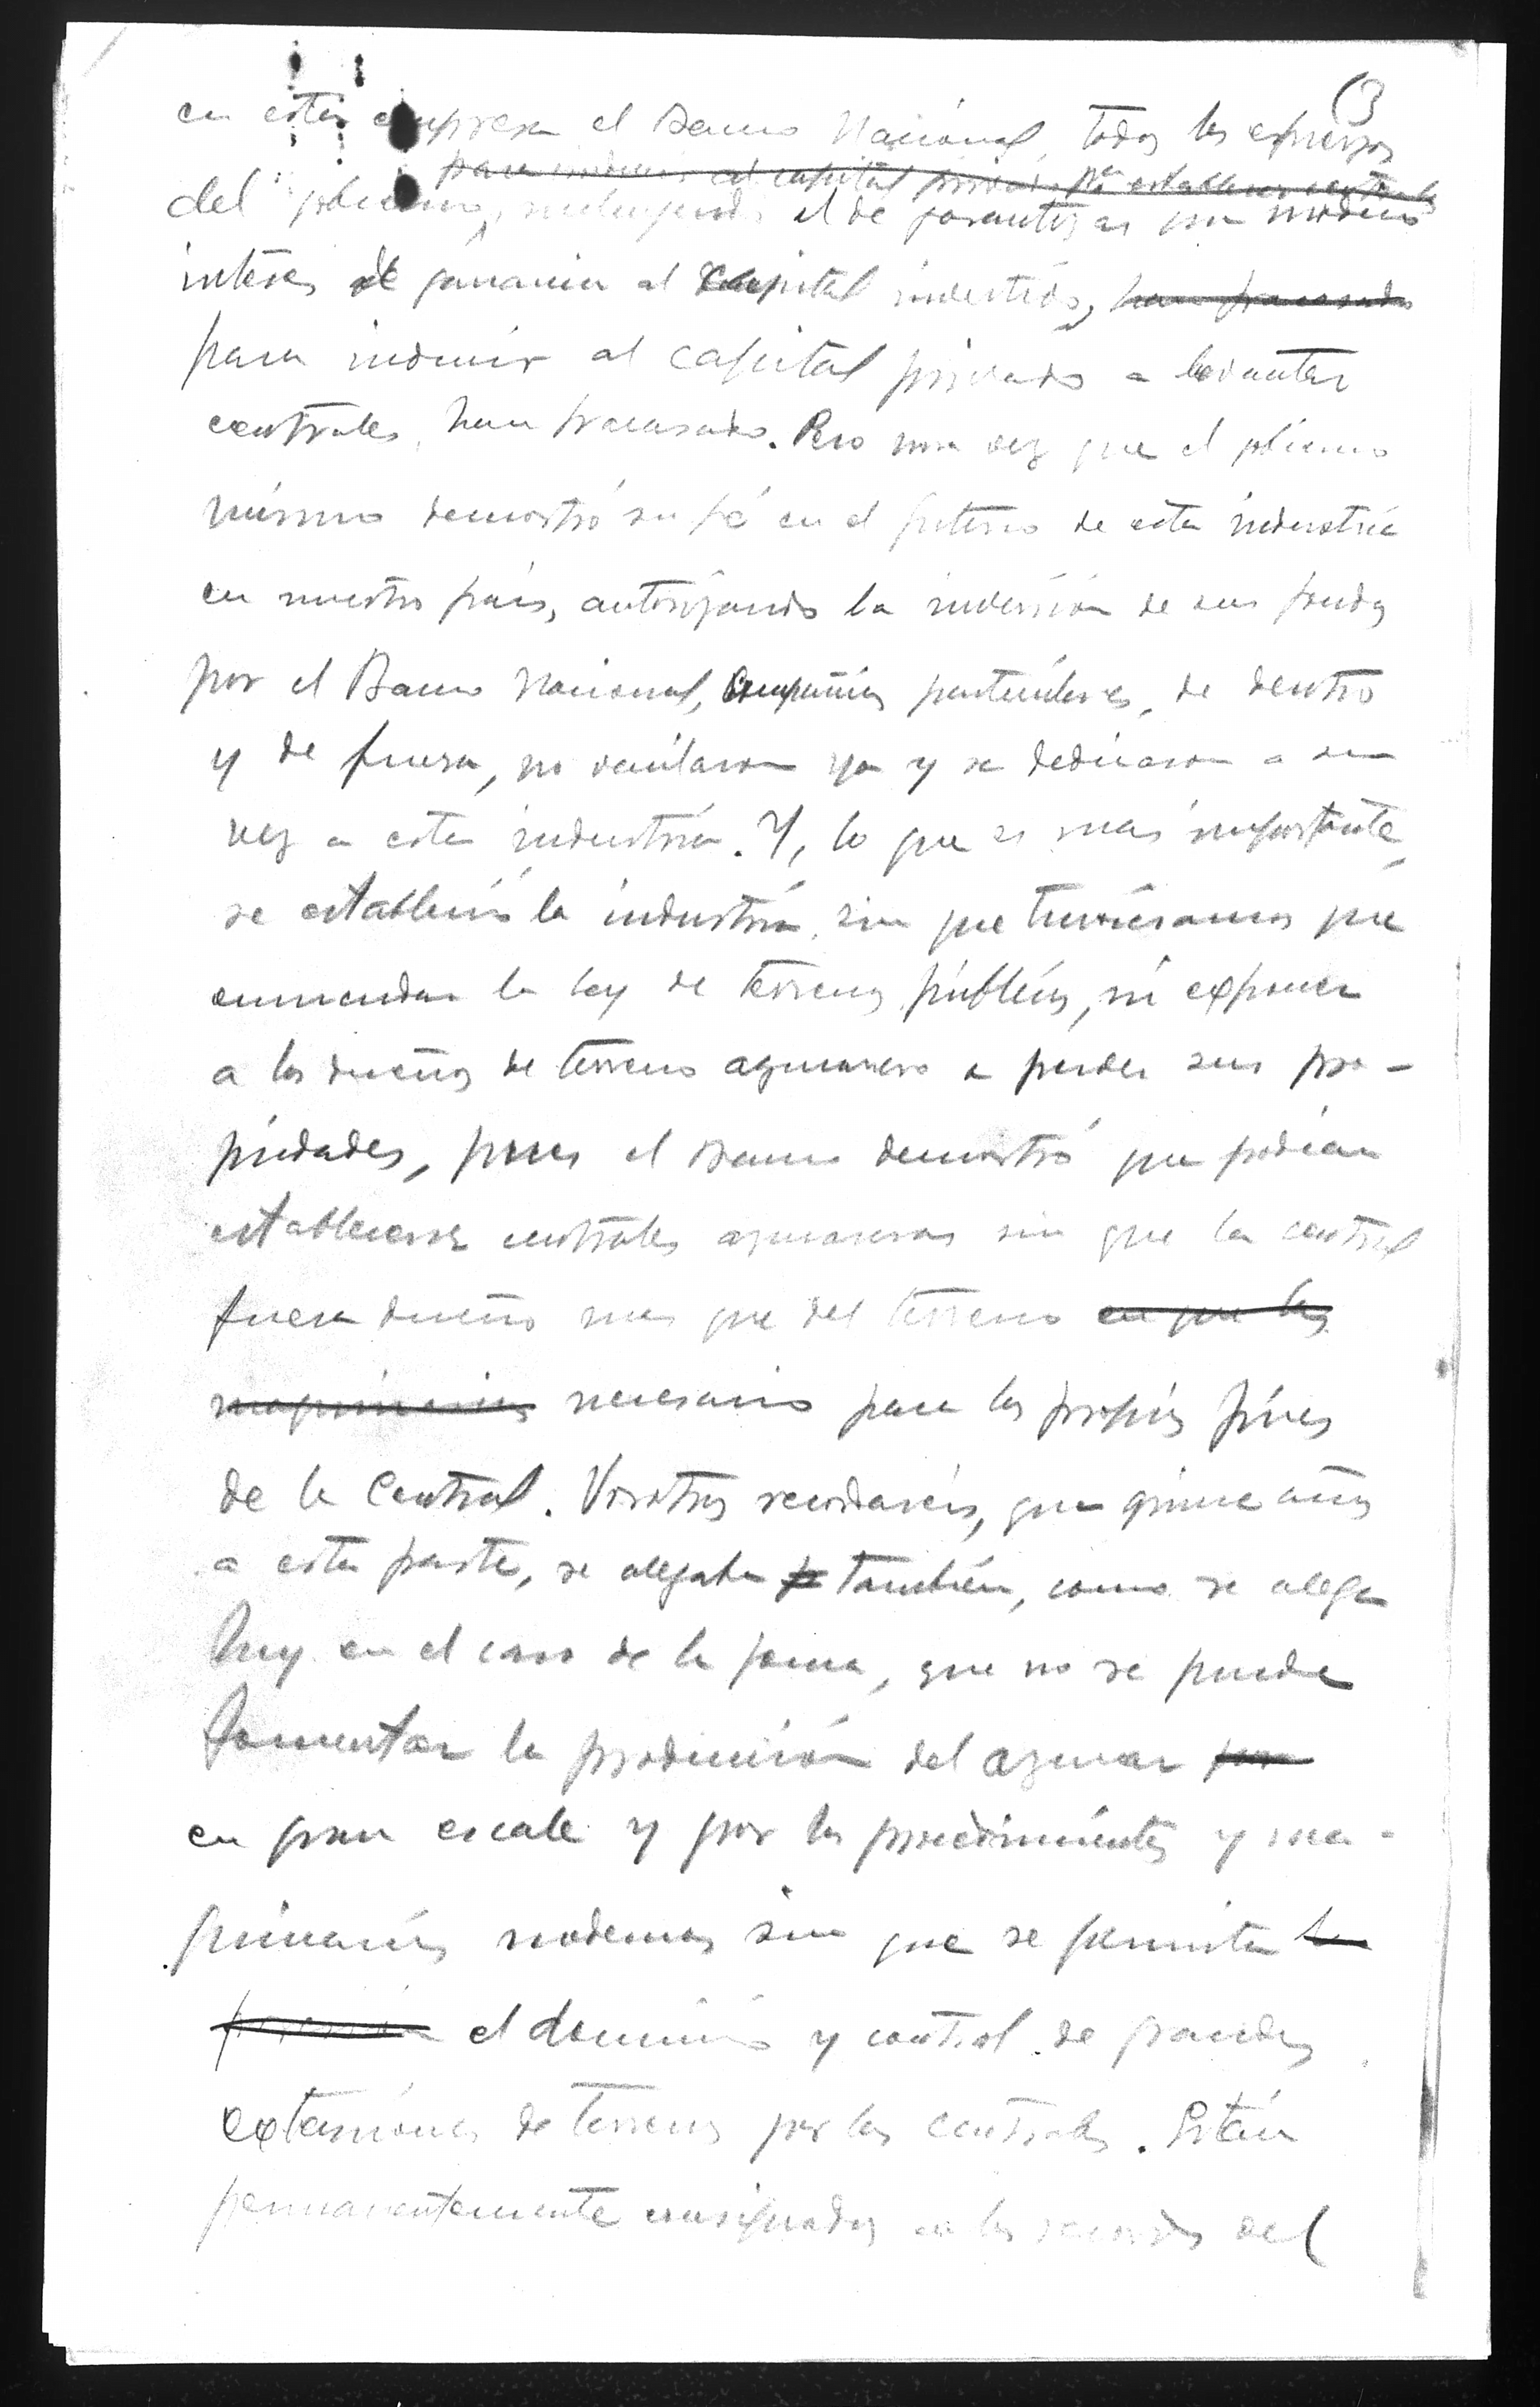 13
en esta empresa el Banco Nacional, todos los esfuerzos
para inducir al capital privado pa establecer centrales
del gobierno, incluyendo el de garantizar un módico
interés de ganancia al capital invertido, han fracasado
para inducir al capital privado a levantar
centrales, han fracasado. Pero una vez que el gobierno
mismo demostró su fé en el futuro de esta industria
en nuestro país, autorizando la inversión de sus fondos
por el Banco Nacional, Compañias particulares, de dentro
y de fuera, no vacilaron ya y se dedicaron a su
vez a esta industria. Y, lo que es mas importante,
se estableció la industria, sin que tuviésemos que
enmendar la ley de terrenos públicos, ni exponer
a los dueños de terreno azucarero a perder sus pro-
piedades, pues el Banco demostró que podian
establecerse centrales azucareras sin que la central
fuera dueño mas que del terreno en que las
maquinarias necesario para los propios fines
de la Central. Vosotros recordareis, que quince años
a esta parte, se alegaba también, como se alega
hoy en el caso de la goma, que no se puede
fomentar la producción del azucar por
en gran escala y por los procedimientos y ma-
quinarias modernas sin que se permita la
posesión el dominio y control de grandes
extensiones de terrenos por las centrales. Están
permanentemente consignados en los records del